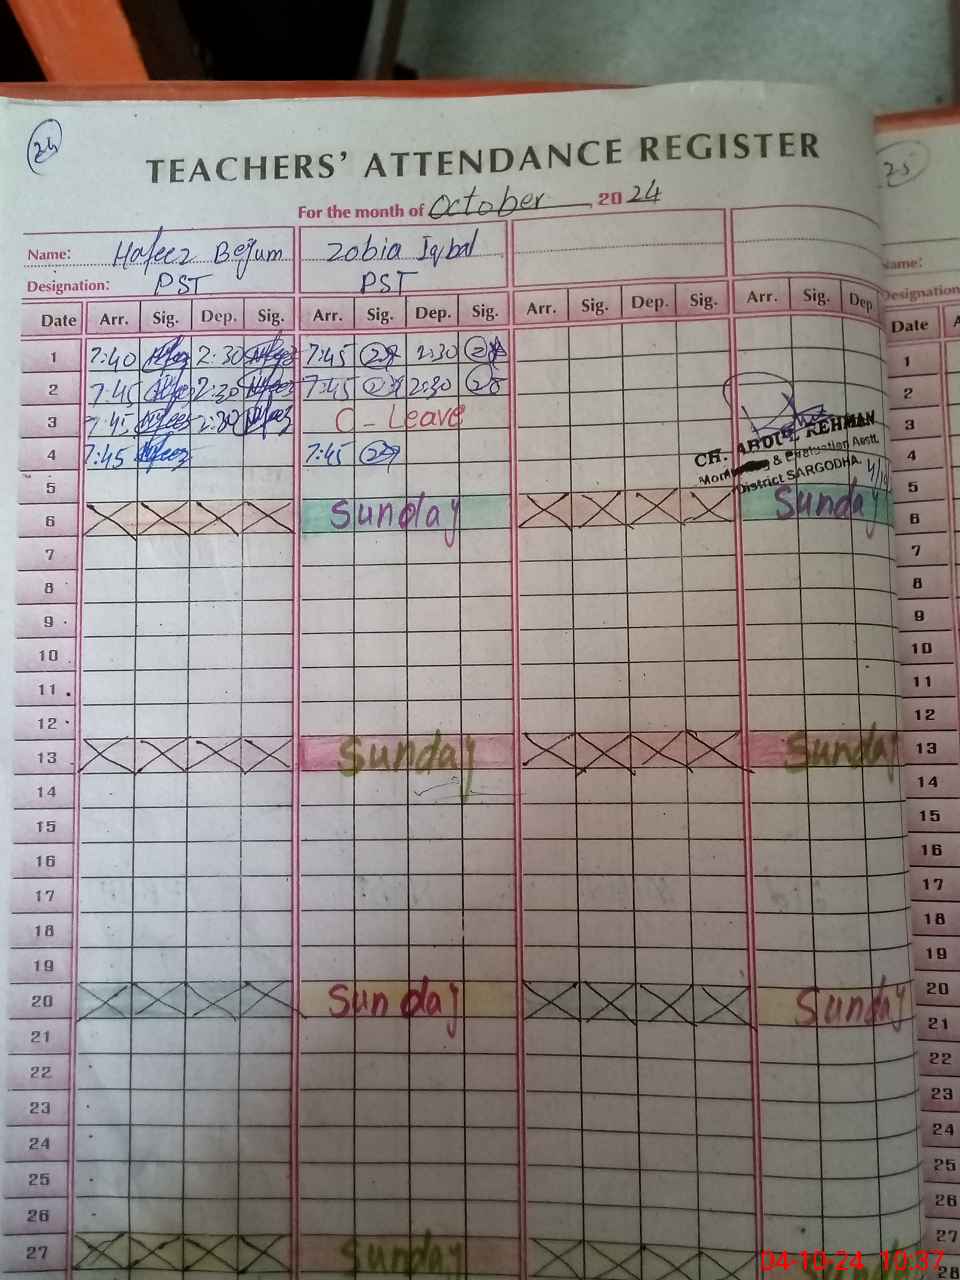 24
TEACHERS' ATTENDANCE REGISTER
25
For the month of October, 2024
Name: Hafeez Begum Zobia Iqbal
Name:
Designation: PST PST
Designation:
Date Arr. Sig. Dep. Sig. Arr. Sig. Dep. Sig. Arr. Sig. Dep. Sig. Arr. Sig. Dep
Date A
1 7:40 Hafeez 2:30 Hafeez 7:45 2:30
1
2 7:45 Hafeez 2:30 Hafeez 7:45 2:30
2
3 7:45 Hafeez 2:30 Hafeez C-Leave
3
4 7:45 Hafeez 7:45
4
CH. ABDUL REHMAN
& Evaluation Asstt.
District SARGODHA. 4/10
5
5
6 Sunday Sunday
6
7
7
8
8
9
9
10
10
11
11
12
12
13 Sunday Sunday
13
14
14
15
15
16
16
17
17
18
18
19
19
20 Sunday Sunday
20
21
21
22
22
23
23
24
24
25
25
26
26
27 Sunday
27
28
04-10-24 10:37